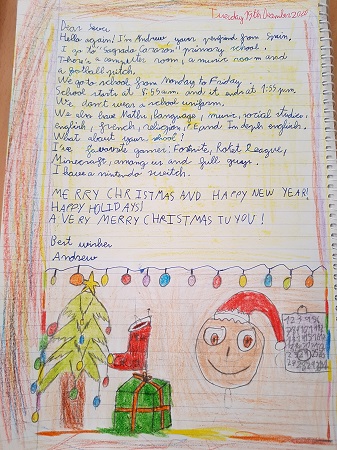 Tuesday 15th December 2020
Dear
Hello again! I'm Andrew, your penfriend from Spain.
I go to "Sagrado Corazón" primary school.
There's a computer room, a music room and
a football pitch.
We go to school from Monday to Friday.
School starts at 8:55am and it ends at 1:55pm.
We don't wear a school uniform.
We also have Maths, language, music, social studies,
english, french, religion, and In depth english.
What about your school?
I've favourite games: Fortnite, Rocket League,
Minecraft, among us and full guys.
I have a nintendo switch.
MERRY CHRISTMAS AND HAPPY NEW YEAR!
HAPPY HOLIDAYS!
A VERY MERRY CHRISTMAS TO YOU!
Best wishes
Andrew